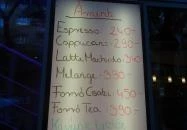 Amint
Espresso 240-
Cappuccino 290-
Latte Machiato 340
Melange - 390-
Forró Csoki - 450-
Forró Tea - 390-